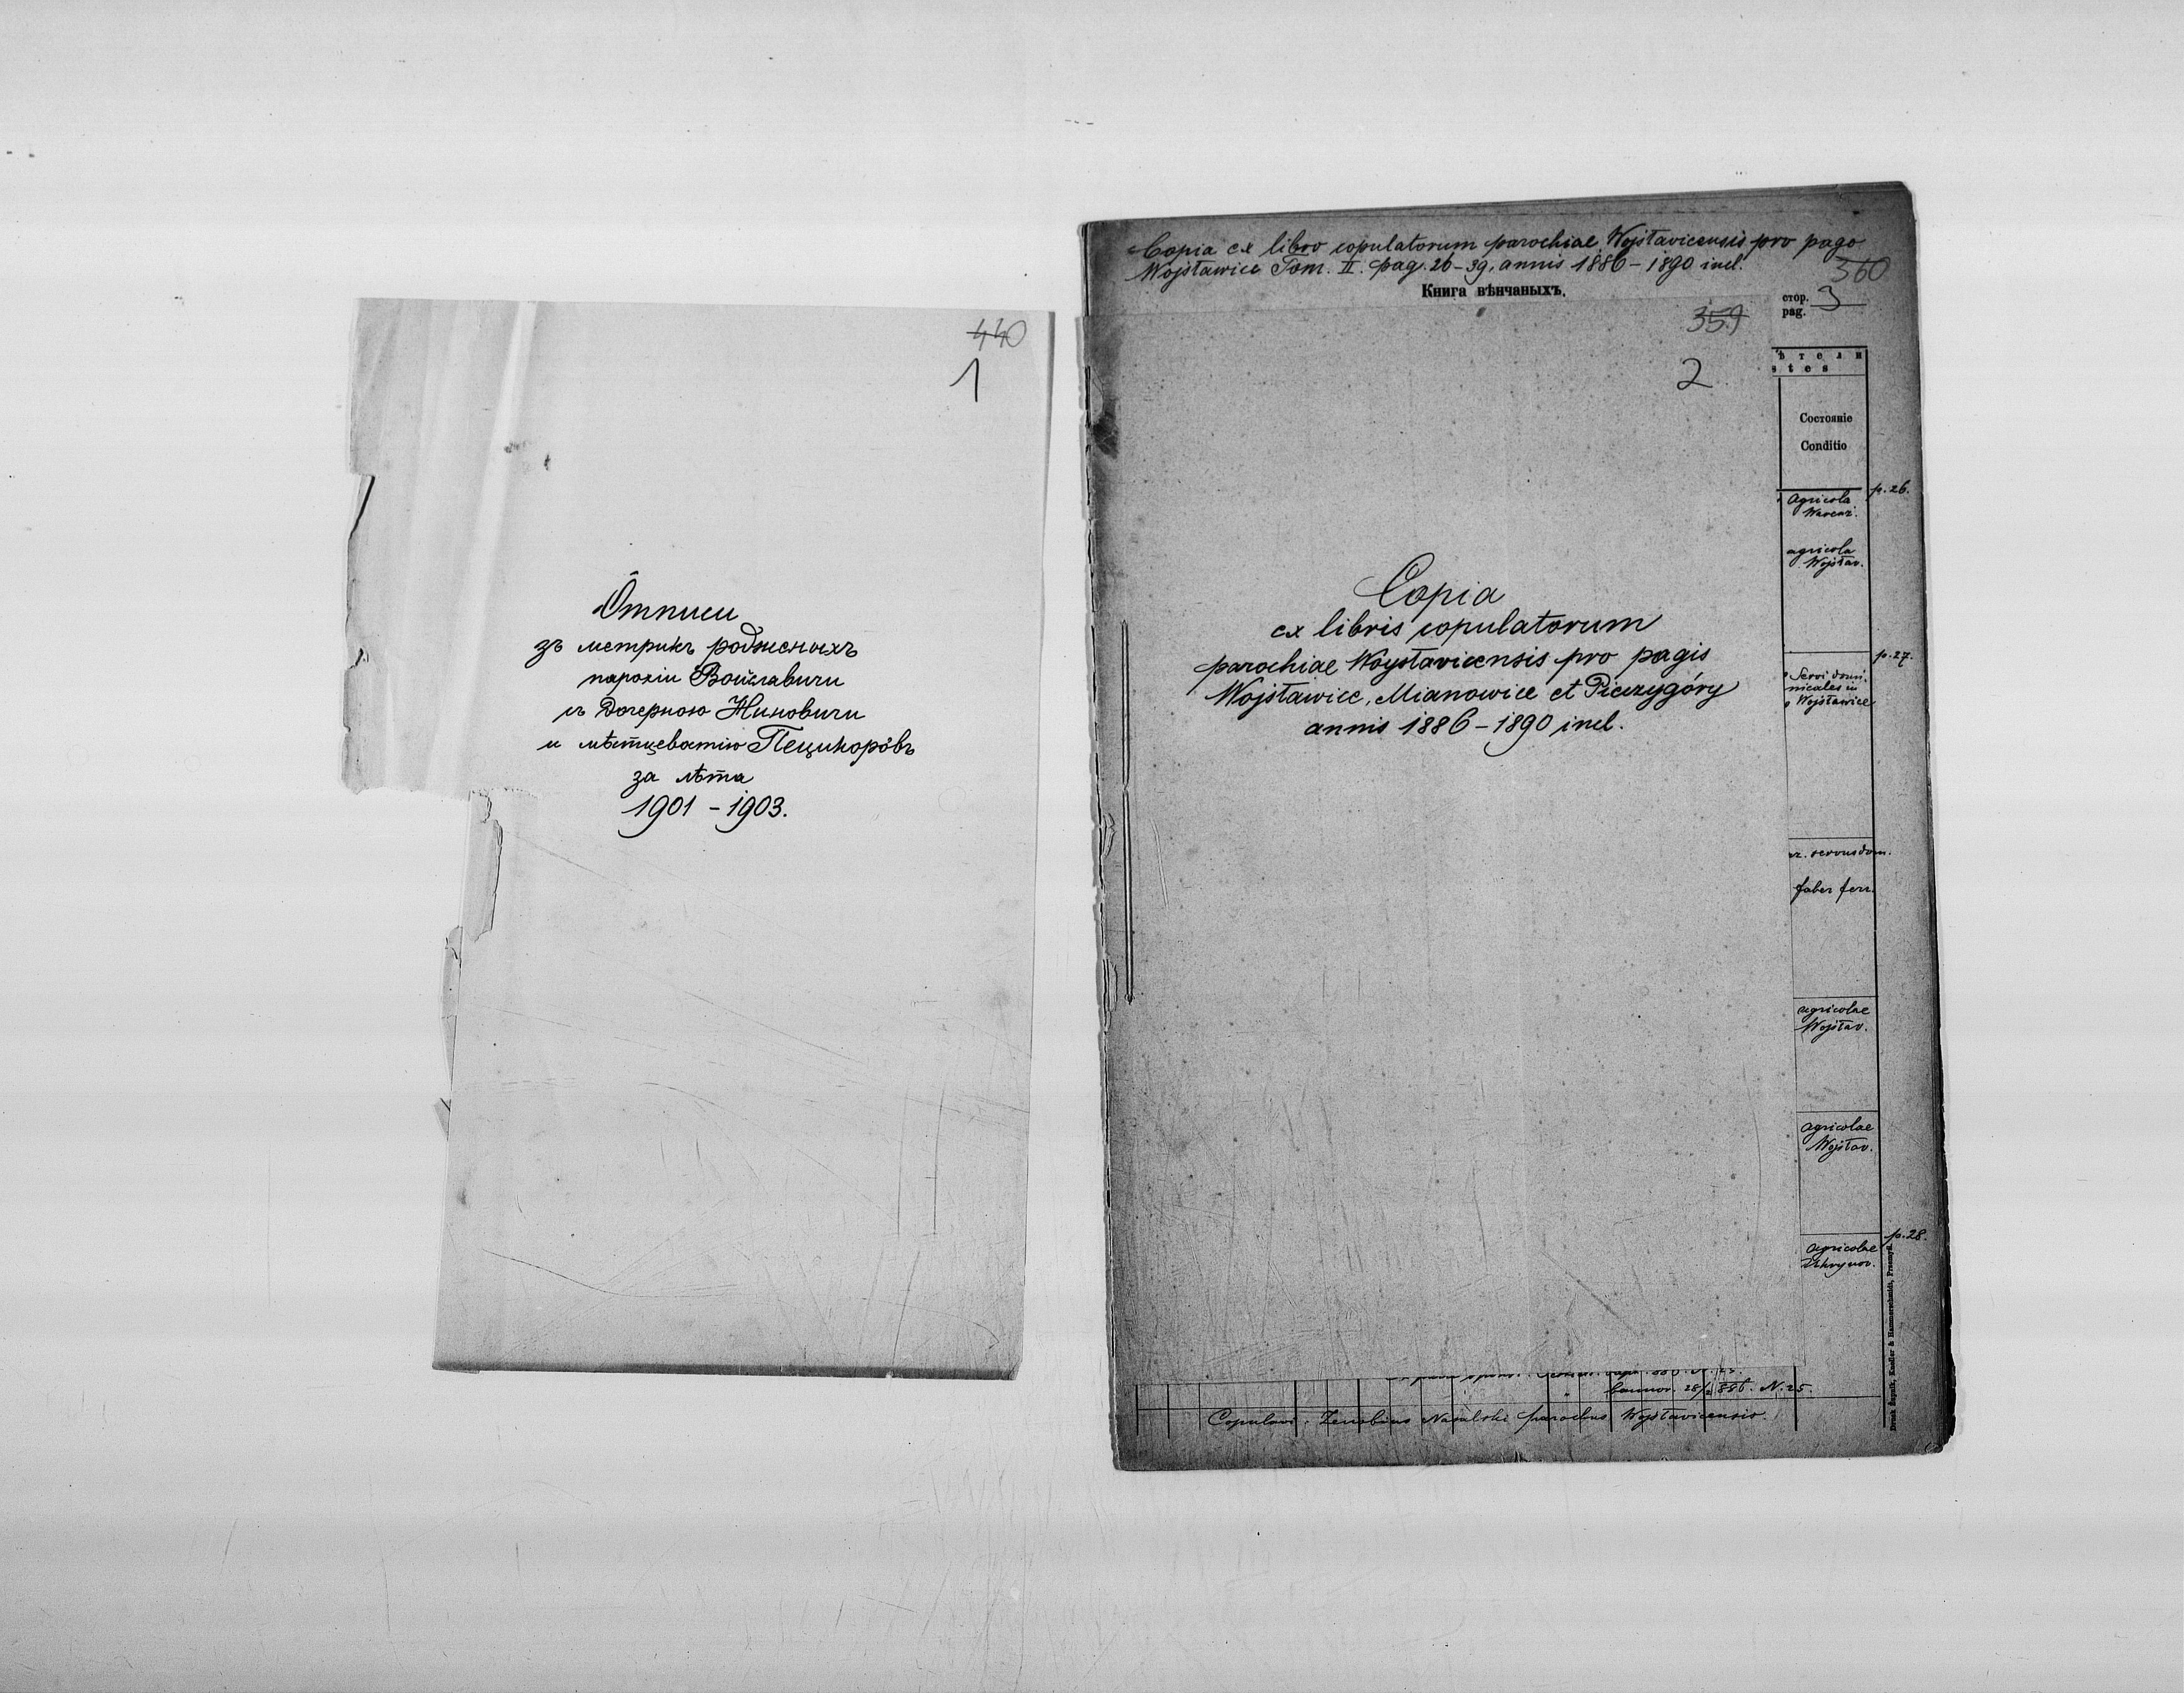 440
1
Ôтписи
зъ метрикъ родженыхъ
парохіи Войславичи
съ дочерною Ниновичи
и мѣстцевостію Пещигорôвъ
за лѣта
1901 – 1903.
Copia ex libro copulatorum parochiae Wojsławicensis pro pago
Wojsławice Tom. II. pag. 26–39, annis 1886–1890 incl.
360
Книга вѣнчаныхъ.
стор.
pag. 3
359
2
ѣтели
stes
Состояніе
Conditio
p. 26.
Agricola
agricola
Wojsław.
p. 27.
Servi domi-
nicales in
Wojsławice
servus dom.
faber ferr.
agricolae
Wojsław.
agricolae
Wojsław.
p. 28.
agricolae
Copia
ex libris copulatorum
parochiae Woysławicensis pro pagis
Wojsławice, Mianowice et Pieczygóry
annis 1886–1890 incl.
N. 25.
Copulavi: Zenobius Nasalski parochus Wojsławicensis.
Druk Żupnik, Knoller & Hammerschmidt, Przemyśl.